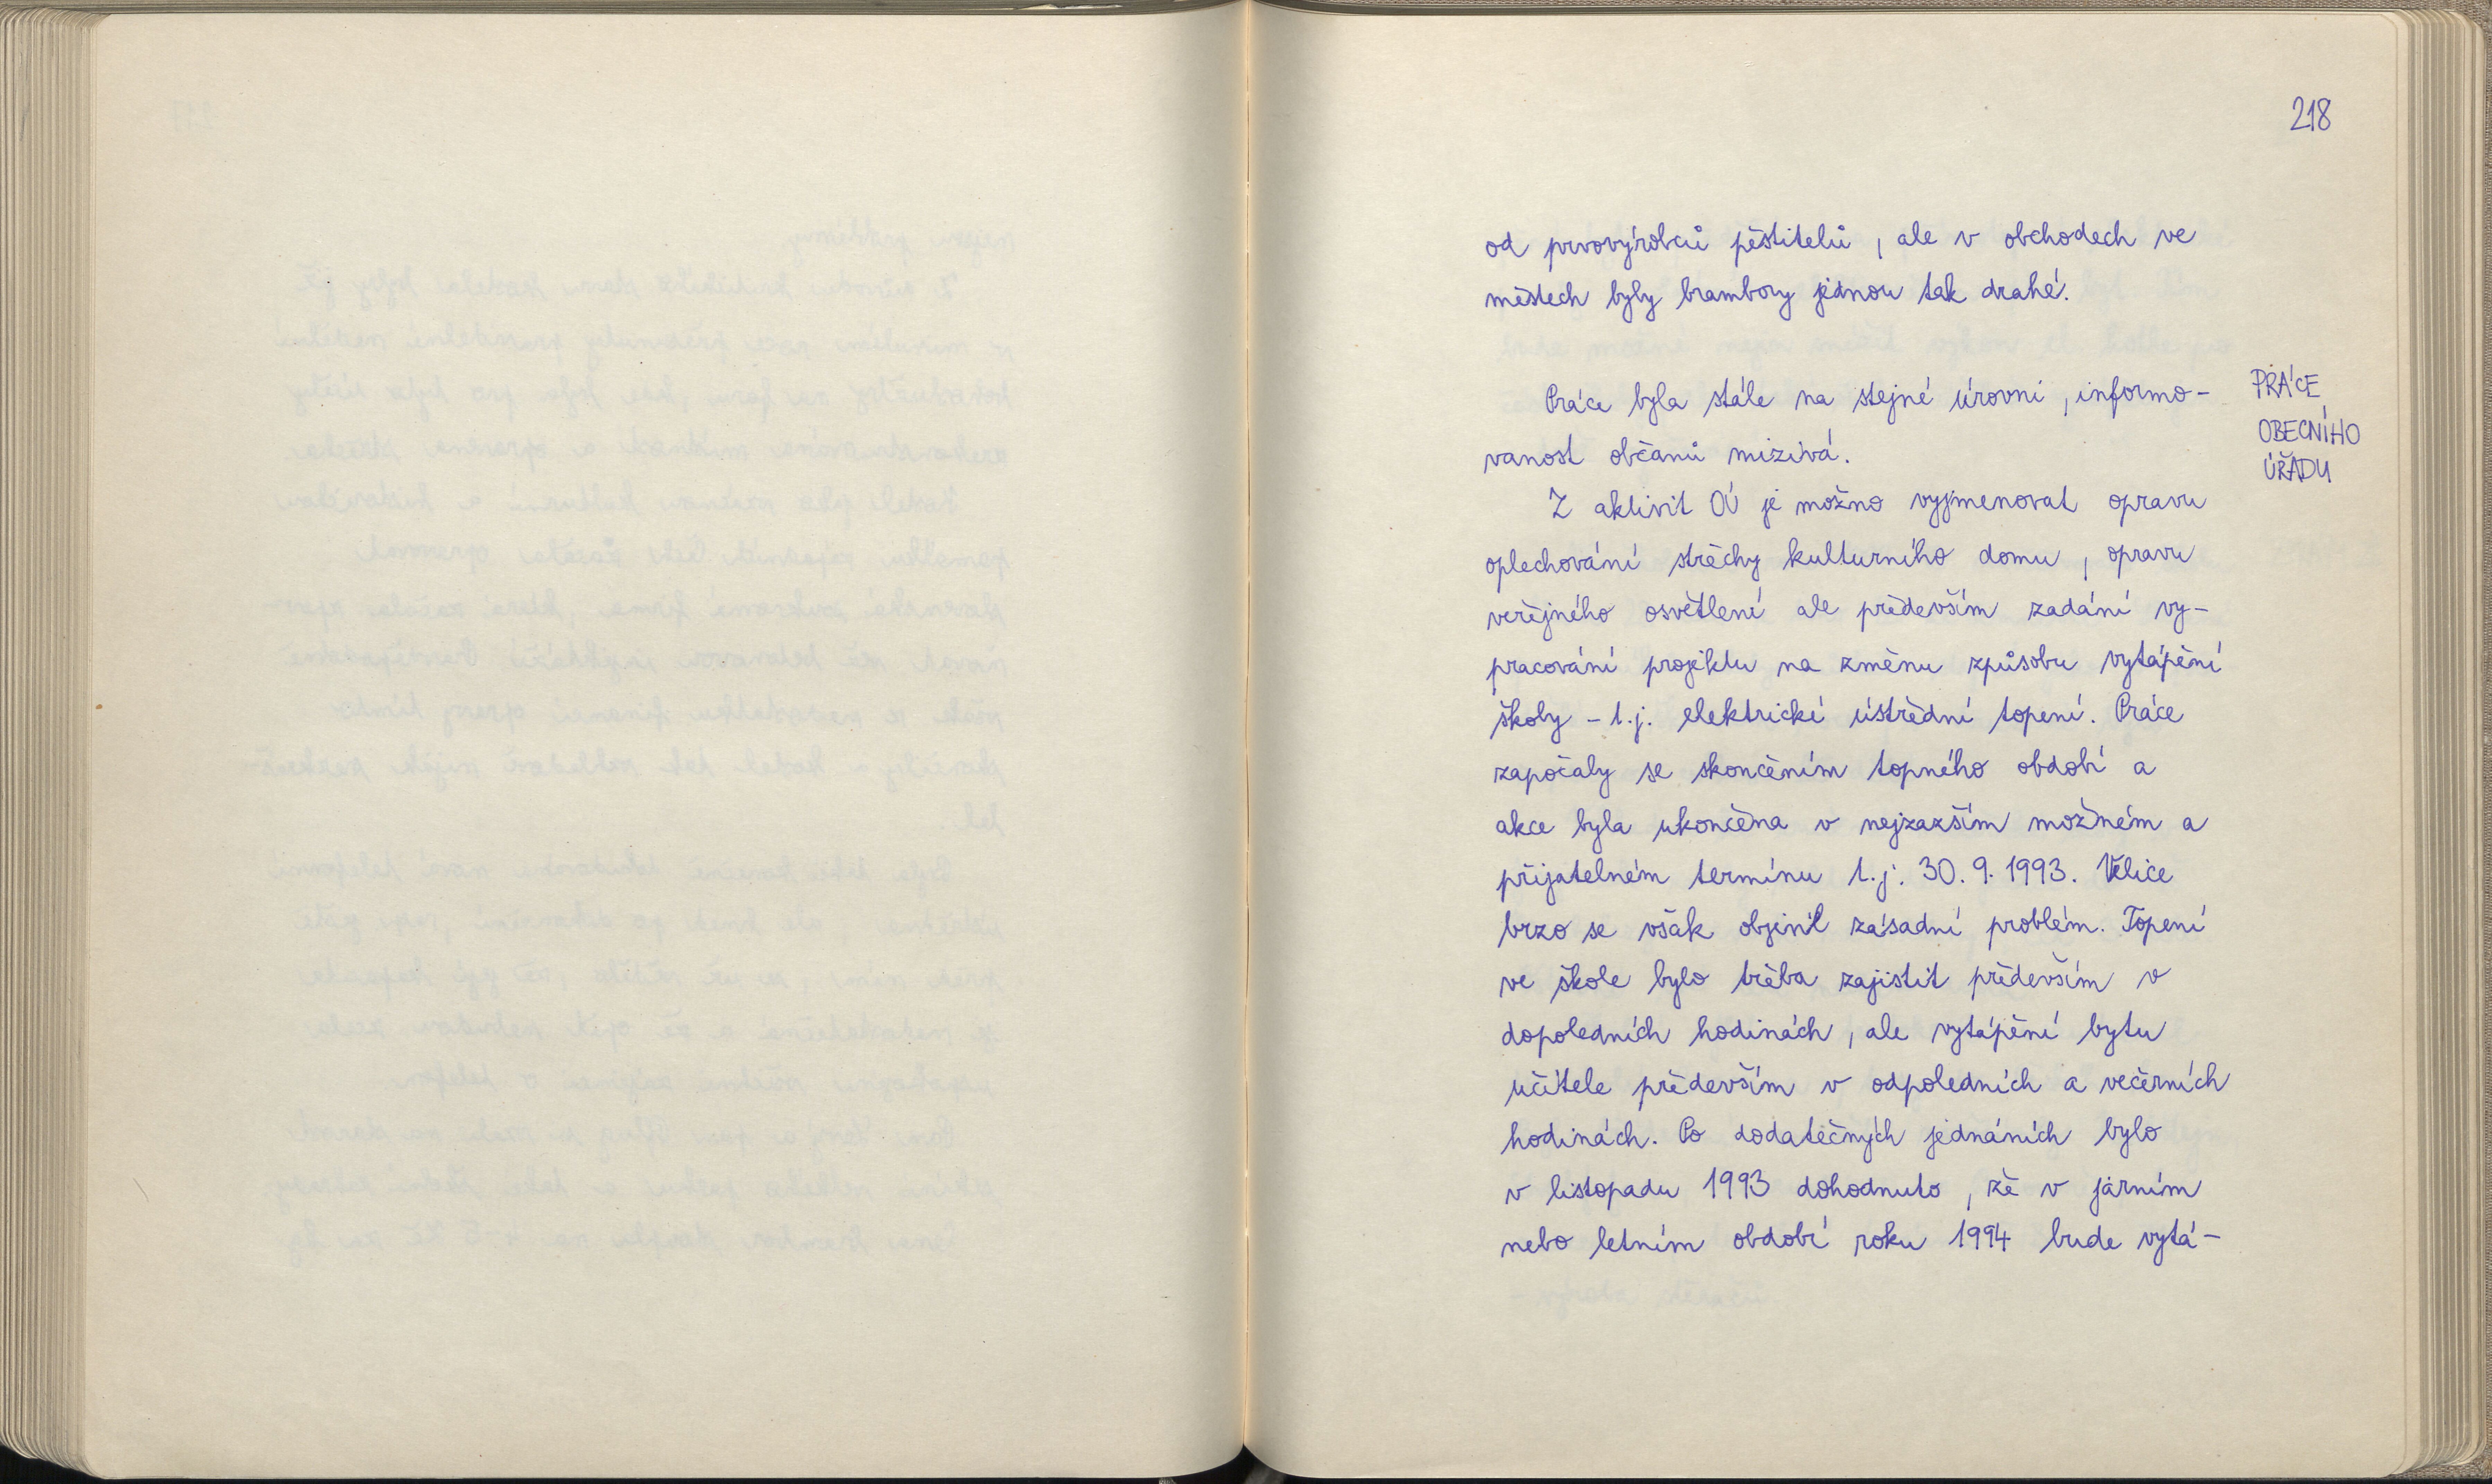 218
od prvovýrobců pěstitelů, ale v obchodech ve
městech byly brambory jednou tak drahé.
PRÁCE
OBECNÍHO
ÚŘADU
Práce byla stále na stejné úrovni, informo-
vanost občanů mizivá.
Z aktivit OÚ je možno vyjmenovat opravu
oplechování střechy kulturního domu, opravu
veřejného osvětlení ale především zadání vy-
pracování projektu na změnu způsobu vytápění
školy - t.j. elektrické ústřední topení. Práce
započaly se skončením topného období a
akce byla ukončena v nejzazším možném a
přijatelném termínu t.j. 30.9.1993. Velice
brzo se však objevil zásadní problém. Topení
ve škole bylo třeba zajistit především v
dopoledních hodinách, ale vytápění bytu
učitele především v odpoledních a večerních
hodinách. Po dodatečných jednáních bylo
v listopadu 1993 dohodnuto, že v jarním
nebo letním období roku 1994 bude vytá-